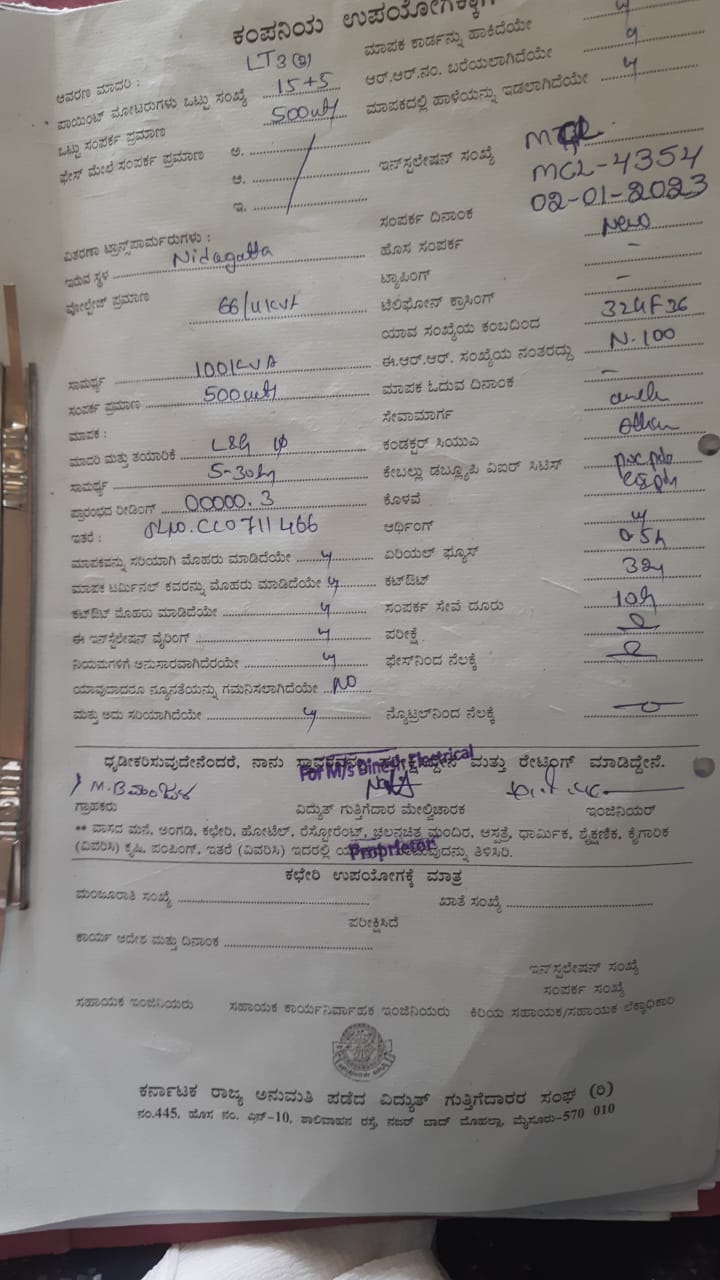 ಕಂಪನಿಯ ಉಪಯೋಗಕ್ಕಾಗಿ
ಆವರಣ ಮಾದರಿ : LT3(a) ಮಾಪಕ ಕಾರ್ಡನ್ನು ಹಾಕಿದೆಯೇ y
ಪಾಯಿಂಟ್ ಮೋಟರುಗಳು ಒಟ್ಟು ಸಂಖ್ಯೆ 15+5 ಆರ್.ಆರ್.ನಂ. ಬರೆಯಲಾಗಿದೆಯೇ y
ಒಟ್ಟು ಸಂಪರ್ಕ ಪ್ರಮಾಣ 500 ಮಾಪಕದಲ್ಲಿ ಹಾಳೆಯನ್ನು ಇಡಲಾಗಿದೆಯೇ y
ಫೇಸ್ ಮೇಲೆ ಸಂಪರ್ಕ ಪ್ರಮಾಣ ಅ.
ಆ. ಇನ್‌ಸ್ಟಲೇಷನ್ ಸಂಖ್ಯೆ MCL-4354
ಇ. ಸಂಪರ್ಕ ದಿನಾಂಕ 02-01-2023
ವಿತರಣಾ ಟ್ರಾನ್ಸ್‌ಪಾರ್ಮರುಗಳು : ಹೊಸ ಸಂಪರ್ಕ New
ಇರುವ ಸ್ಥಳ Nidagatta ಟ್ಯಾಪಿಂಗ್ -
ವೋಲ್ಟೇಜ್ ಪ್ರಮಾಣ 66/11KVA ಟೆಲಿಫೋನ್ ಕ್ರಾಸಿಂಗ್ -
ಯಾವ ಸಂಖ್ಯೆಯ ಕಂಬದಿಂದ
ಸಾಮರ್ಥ್ಯ 100KVA ಈ.ಆರ್.ಆರ್. ಸಂಖ್ಯೆಯ ನಂತರದ್ದು N.100
ಸಂಪರ್ಕ ಪ್ರಮಾಣ 500 ಮಾಪಕ ಓದುವ ದಿನಾಂಕ -
ಮಾಪಕ : ಸೇವಾಮಾರ್ಗ
ಮಾದರಿ ಮತ್ತು ತಯಾರಿಕೆ L&G 1φ ಕಂಡಕ್ಟರ್ ಸಿಯುಎ
ಸಾಮರ್ಥ್ಯ 5-30 ಕೇಬಲ್ಲು ಡಬ್ಲ್ಯೂಪಿ ವಿಐರ್ ಸಿಟಿಸ್
ಪ್ರಾರಂಭದ ರೀಡಿಂಗ್ 00000.3 ಕೊಳವೆ
ಇತರೆ : SLNO.CC0711466 ಆರ್ಥಿಂಗ್ y
ಮಾಪಕವನ್ನು ಸರಿಯಾಗಿ ಮೊಹರು ಮಾಡಿದೆಯೇ y ಏರಿಯಲ್ ಫ್ಯೂಸ್
ಮಾಪಕ ಟರ್ಮಿನಲ್ ಕವರನ್ನು ಮೊಹರು ಮಾಡಿದೆಯೇ y ಕಟ್‌ಔಟ್
ಕಟ್‌ಔಟ್ ಮೊಹರು ಮಾಡಿದೆಯೇ y ಸಂಪರ್ಕ ಸೇವೆ ದೂರು
ಈ ಇನ್‌ಸ್ಟಲೇಷನ್ ವೈರಿಂಗ್ y ಪರೀಕ್ಷೆ
ನಿಯಮಗಳಿಗೆ ಅನುಸಾರವಾಗಿದೆರಯೇ y ಫೇಸ್‌ನಿಂದ ನೆಲಕ್ಕೆ
ಯಾವುದಾದರೂ ನ್ಯೂನತೆಯನ್ನು ಗಮನಿಸಲಾಗಿದೆಯೇ NO
ಮತ್ತು ಅದು ಸರಿಯಾಗಿದೆಯೇ y ನ್ಯೂಟ್ರಲ್‌ನಿಂದ ನೆಲಕ್ಕೆ
ಧೃಡೀಕರಿಸುವುದೇನೆಂದರೆ, ನಾನು ಸ್ಥಾವರವನ್ನು ಪರೀಕ್ಷಿಸಿದ್ದೇನೆ ಮತ್ತು ರೇಟಿಂಗ್ ಮಾಡಿದ್ದೇನೆ.
For M/s Dinesh Electrical
ಗ್ರಾಹಕರು ವಿದ್ಯುತ್ ಗುತ್ತಿಗೆದಾರ ಮೇಲ್ವಿಚಾರಕ ಇಂಜಿನಿಯರ್
** ವಾಸದ ಮನೆ, ಅಂಗಡಿ, ಕಛೇರಿ, ಹೋಟೆಲ್, ರೆಸ್ಟೋರೆಂಟ್, ಚಲನಚಿತ್ರ ಮಂದಿರ, ಆಸ್ಪತ್ರೆ, ಧಾರ್ಮಿಕ, ಶೈಕ್ಷಣಿಕ, ಕೈಗಾರಿಕ
(ವಿವರಿಸಿ) ಕೃಷಿ, ಪಂಪಿಂಗ್, ಇತರೆ (ವಿವರಿಸಿ) ಇದರಲ್ಲಿ ತಿಳಿಸಿರಿ.
Proprietor
ಕಛೇರಿ ಉಪಯೋಗಕ್ಕೆ ಮಾತ್ರ
ಮಂಜೂರಾತಿ ಸಂಖ್ಯೆ ಖಾತೆ ಸಂಖ್ಯೆ
ಪರೀಕ್ಷಿಸಿದೆ
ಕಾರ್ಯ ಆದೇಶ ಮತ್ತು ದಿನಾಂಕ
ಇನ್‌ಸ್ಟಲೇಷನ್ ಸಂಖ್ಯೆ
ಸಂಪರ್ಕ ಸಂಖ್ಯೆ
ಸಹಾಯಕ ಇಂಜಿನಿಯರು ಸಹಾಯಕ ಕಾರ್ಯನಿರ್ವಾಹಕ ಇಂಜಿನಿಯರು ಕಿರಿಯ ಸಹಾಯಕ/ಸಹಾಯಕ ಲೆಕ್ಕಾಧಿಕಾರಿ
ಕರ್ನಾಟಕ ರಾಜ್ಯ ಅನುಮತಿ ಪಡೆದ ವಿದ್ಯುತ್ ಗುತ್ತಿಗೆದಾರರ ಸಂಘ (ರಿ)
ನಂ.445, ಹೊಸ ನಂ. ಎನ್-10, ಶಾಲಿವಾಹನ ರಸ್ತೆ, ನಜರ್ ಬಾದ್ ಮೊಹಲ್ಲಾ, ಮೈಸೂರು-570 010